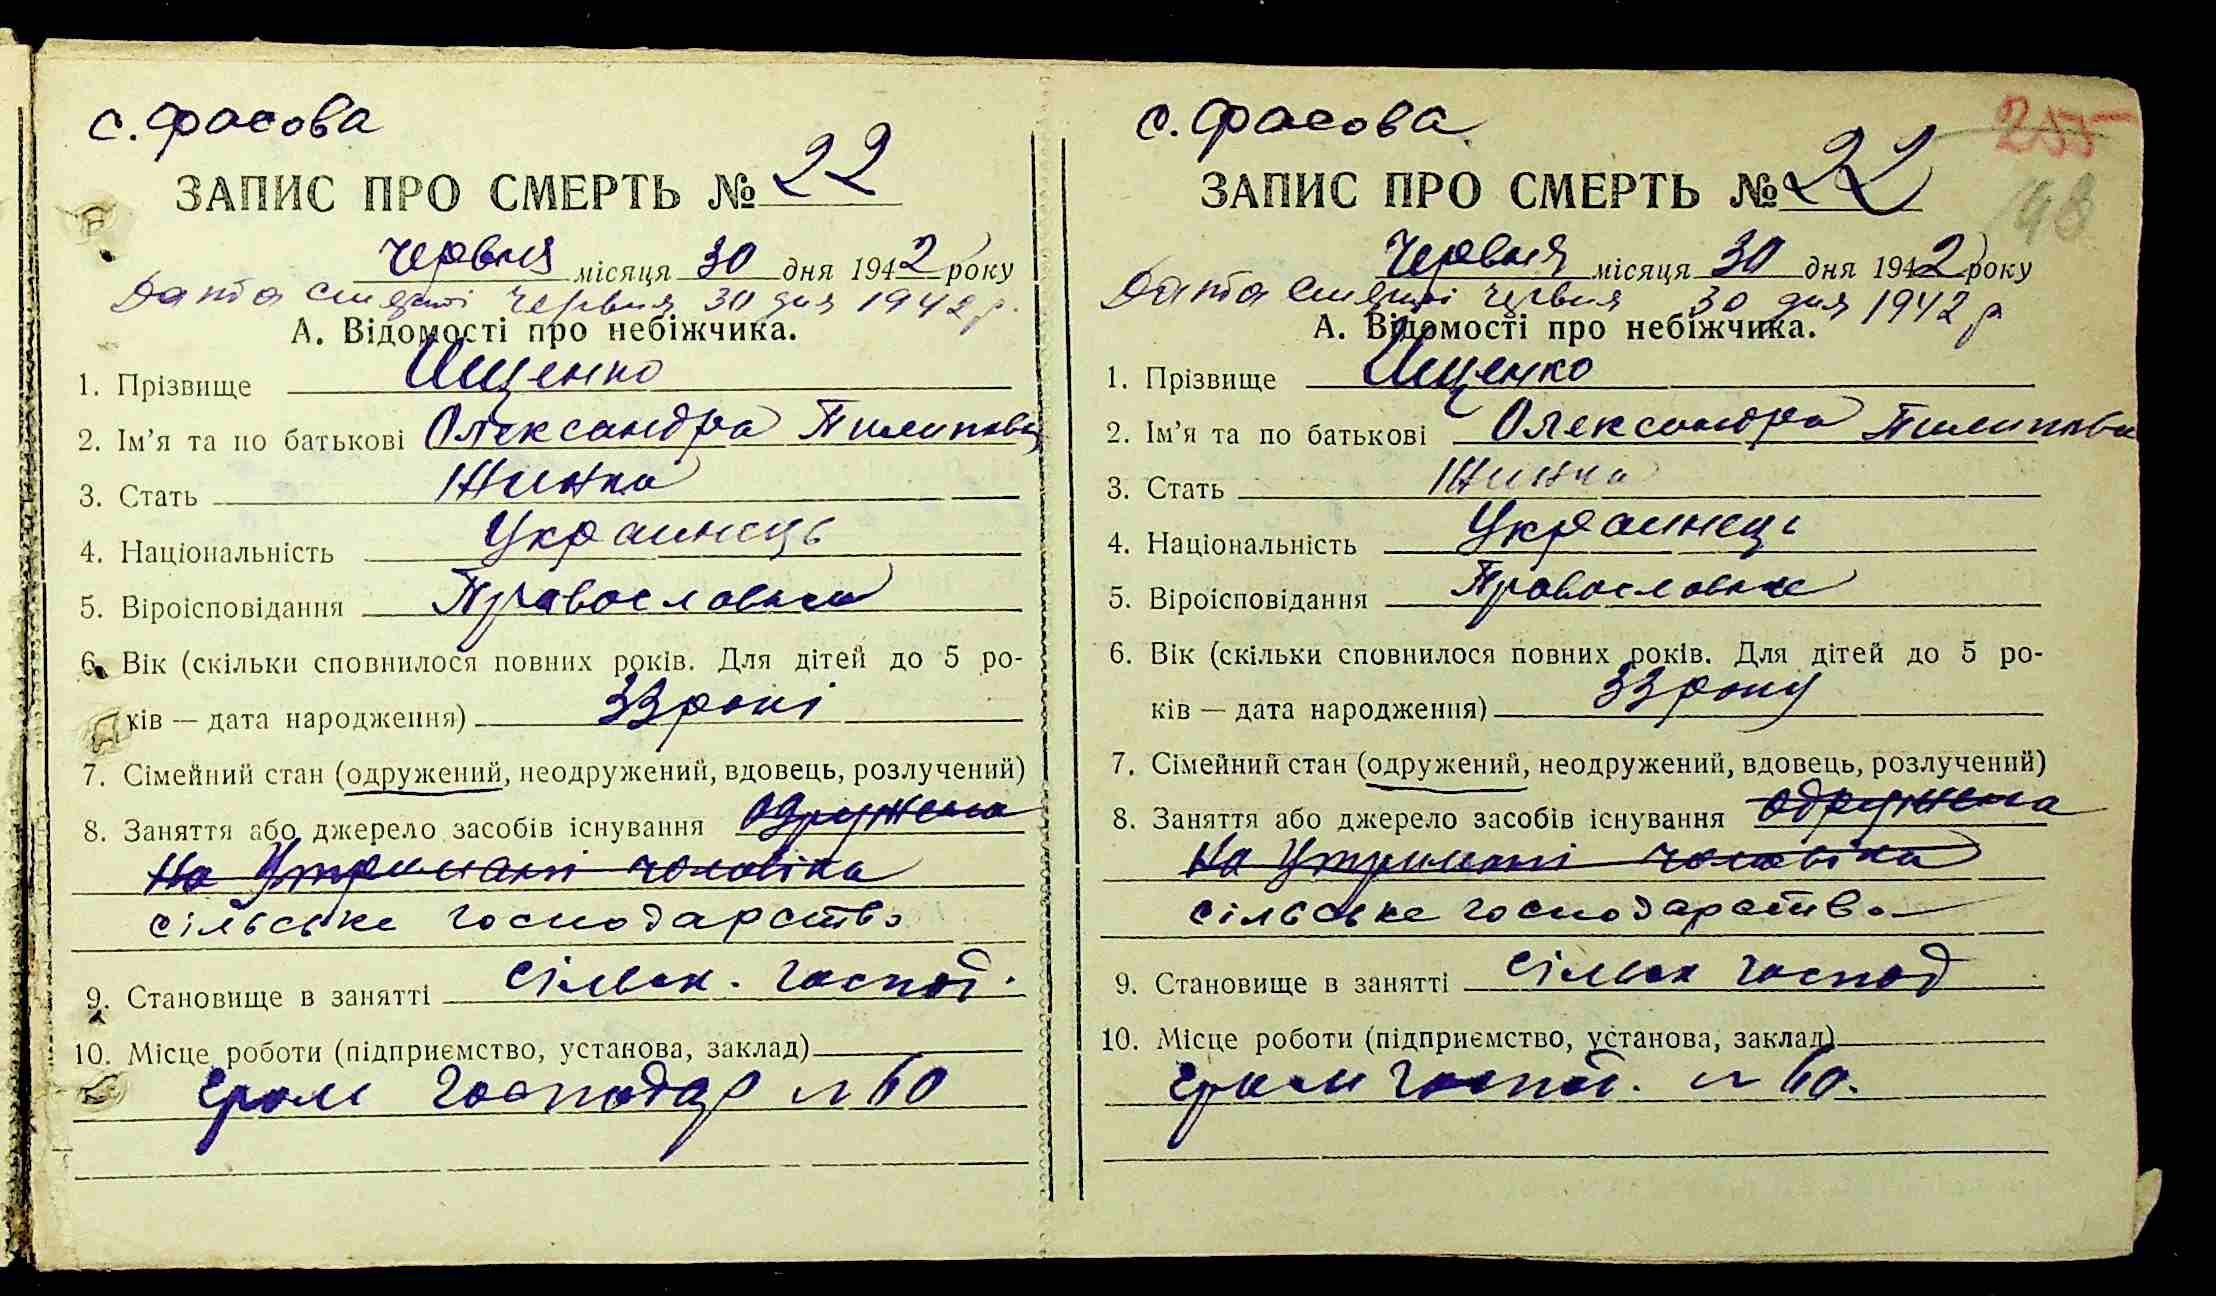 с. Фасова
ЗАПИС ПРО СМЕРТЬ № 22
червня місяця 30 дня 1942 року
Дата смерті червня 30 дня 1942 р.
А. Відомості про небіжчика.
1. Прізвище Ищенко
2. Ім'я та по батькові Олександра Пилиповн
3. Стать Жинка
4. Національність Украинець
5. Віроісповідання Православна
6. Вік (скільки сповнилося повних років. Для дітей до 5 ро-
ків — дата народження) 33 рокі
7. Сімейний стан (одружений, неодружений, вдовець, розлучений)
8. Заняття або джерело засобів існування одружена
На Утримані чоловіка
сільське господарство
9. Становище в занятті сільськ. господ.
10. Місце роботи (підприємство, установа, заклад)
гром господар № 60
с. Фасова
255
ЗАПИС ПРО СМЕРТЬ № 22
148
червня місяця 30 дня 1942 року
Дата смерті червня 30 дня 1942 р
А. Відомості про небіжчика.
1. Прізвище Ищенко
2. Ім'я та по батькові Олександра Пилиповн
3. Стать Жинка
4. Національність Украинець
5. Віроісповідання Православна
6. Вік (скільки сповнилося повних років. Для дітей до 5 ро-
ків — дата народження) 33 року
7. Сімейний стан (одружений, неодружений, вдовець, розлучений)
8. Заняття або джерело засобів існування одружена
На Утримані чоловіка
сільське господарство
9. Становище в занятті сільськ господ
10. Місце роботи (підприємство, установа, заклад)
гром господ. № 60.